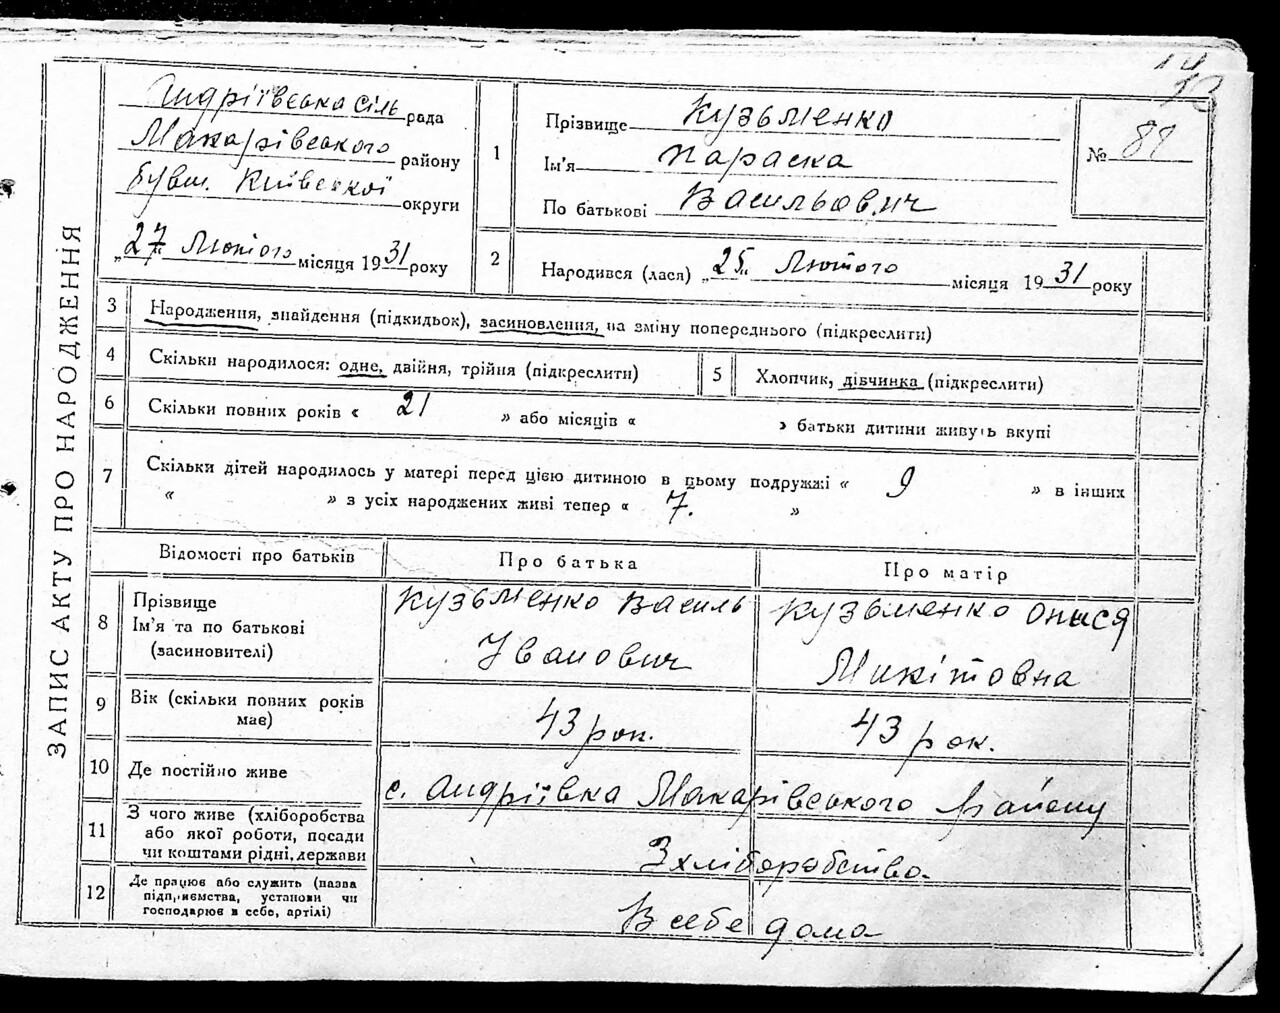 ЗАПИС АКТУ ПРО НАРОДЖЕННЯ
Андріївська сіль рада
Макарівського району
бувш. Київської округи
„27“ Лютого місяця 1931 року
1
Прізвище Кузьменко
Ім'я Параска
По батькові Васильович
№ 81
2
Народився (лася) „25“ Лютого місяця 1931 року
3 Народження, знайдення (підкидьок), засиновлення, на зміну попереднього (підкреслити)
4 Скільки народилося: одне, двійня, трійня (підкреслити)
5 Хлопчик, дівчинка (підкреслити)
6 Скільки повних років « 21 » або місяців « » батьки дитини живуть вкупі
7 Скільки дітей народилось у матері перед цією дитиною в цьому подружжі « 9 » в інших
« » з усіх народжених живі тепер « 7. »
Відомості про батьків Про батька Про матір
8 Прізвище
Ім'я та по батькові
(засиновителі)
Кузьменко Василь
Іванович
Кузьменко Онися
Микітовна
9 Вік (скільки повних років
має)
43 рок. 43 рок.
10 Де постійно живе с. Андріївка Макарівського району
11 З чого живе (хліборобства
або якої роботи, посади
чи коштами рідні, держави
З хліборобство.
12 Де працює або служить (назва
підприємства, установи чи
господарює в себе, артілі)
В себе дома